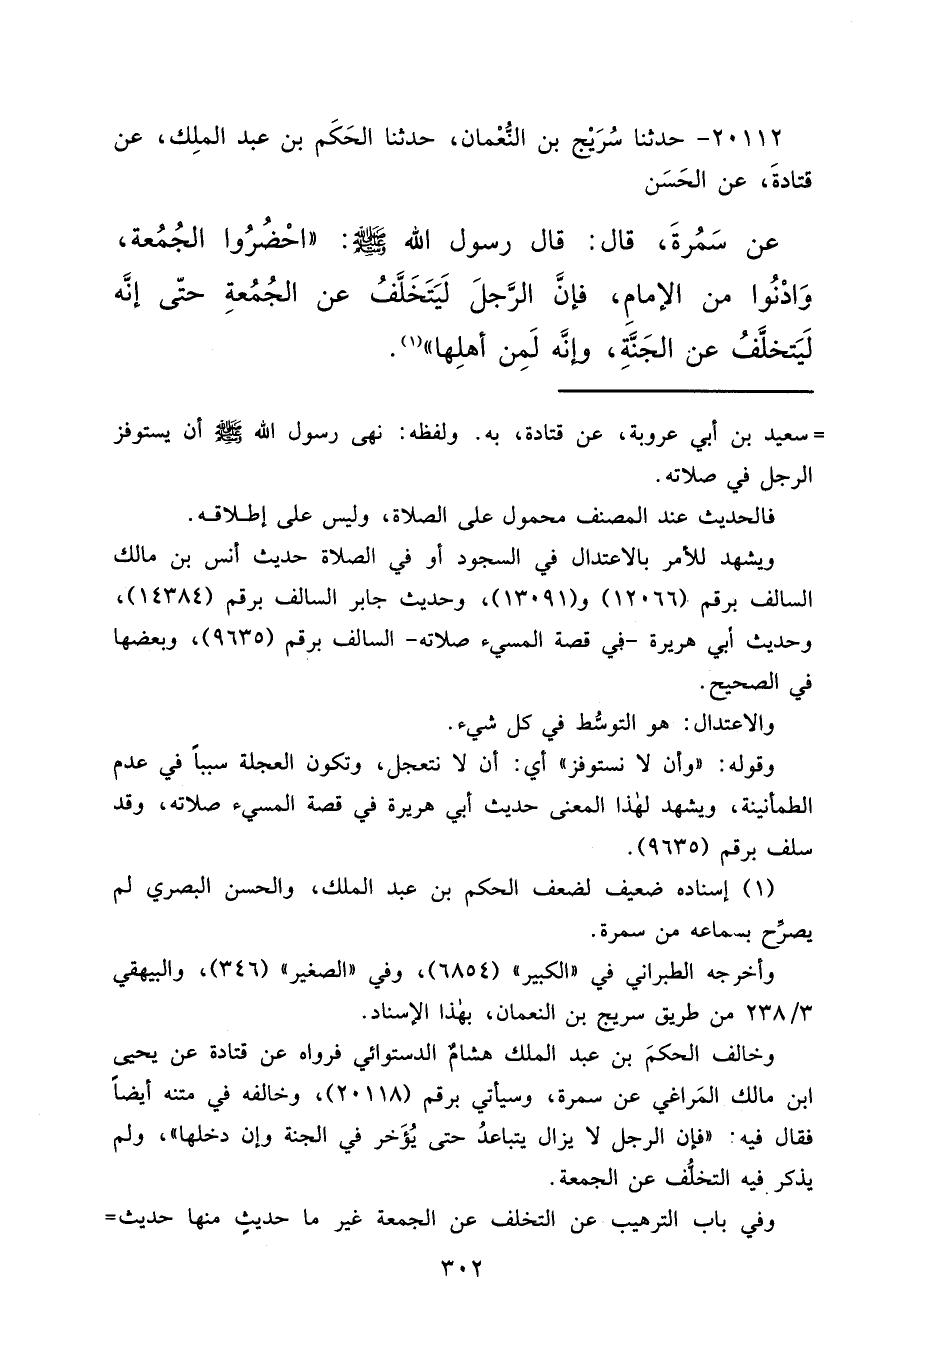 ٢٠١١٢- حدثنا سُرَيْج بن النُّعْمان، حدثنا الحَكَم بن عبد الملِك، عن
قتادةَ، عن الحَسَن
عن سَمُرةَ، قال: قال رسول الله ﷺ: «احْضُرُوا الجُمُعة،
وَادْنُوا من الإمامِ، فإنَّ الرَّجلَ لَيَتَخَلَّفُ عن الجُمُعةِ حتّى إنَّه
لَيَتخلَّفُ عن الجَنَّةِ، وإنَّه لَمِن أهلِها»(١).
=سعيد بن أبي عروبة، عن قتادة، به. ولفظه: نهى رسول الله ﷺ أن يستوفز
الرجل في صلاته.
فالحديث عند المصنف محمول على الصلاة، وليس على إطلاقه.
ويشهد للأمر بالاعتدال في السجود أو في الصلاة حديث أنس بن مالك
السالف برقم (١٢٠٦٦) و(١٣٠٩١)، وحديث جابر السالف برقم (١٤٣٨٤)،
وحديث أبي هريرة -في قصة المسيء صلاته- السالف برقم (٩٦٣٥)، وبعضها
في الصحيح.
والاعتدال: هو التوسُّط في كل شيء.
وقوله: «وأن لا نستوفز» أي: أن لا نتعجل، وتكون العجلة سبباً في عدم
الطمأنينة، ويشهد لهٰذا المعنى حديث أبي هريرة في قصة المسيء صلاته، وقد
سلف برقم (٩٦٣٥).
(١) إسناده ضعيف لضعف الحكم بن عبد الملك، والحسن البصري لم
يصرِّح بسماعه من سمرة.
وأخرجه الطبراني في «الكبير» (٦٨٥٤)، وفي «الصغير» (٣٤٦)، والبيهقي
٢٣٨/٣ من طريق سريج بن النعمان، بهٰذا الإسناد.
وخالف الحكمَ بن عبد الملك هشامٌ الدستوائي فرواه عن قتادة عن يحيى
ابن مالك المَراغي عن سمرة، وسيأتي برقم (٢٠١١٨)، وخالفه في متنه أيضاً
فقال فيه: «فإن الرجل لا يزال يتباعدُ حتى يُؤَخر في الجنة وإن دخلها»، ولم
يذكر فيه التخلُّف عن الجمعة.
وفي باب الترهيب عن التخلف عن الجمعة غير ما حديثٍ منها حديث=
٣٠٢